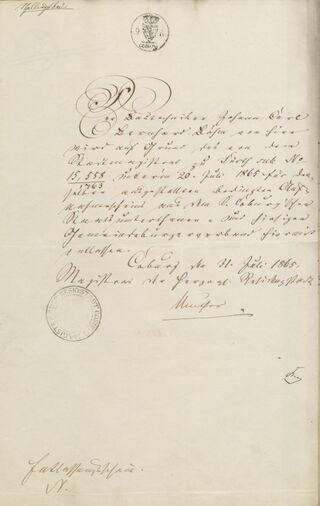 Der Bautechniker Johann Carl
Bernhard Böhm von hier
wird auf Grund des von dem
Stadtmagistrat zu Fürth sub No
15,558 unterm 20. Juli 1865 für den-
1763
selben ausgestellten bedingten Auf-
nahmescheins aus dem H. Coburg'schen
Staatsunterthanen- und hiesigen
Gemeindebürgerverband hieraus
entlassen.
Coburg den 31. Juli 1865.
Magistrat der Herzogl. Residenzstadt
Muther
Entlassungsschein.
N.